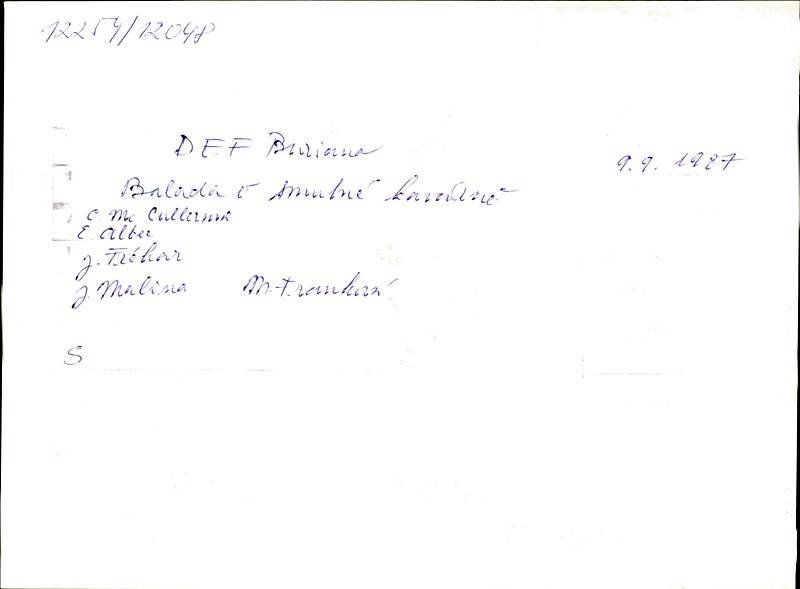 12254/12048
DEF Buriana
9.9. 1987
Balada o smutné kavárně
C. Mc Cullersová
E. Albee
J. Fréhar
J. Malina M. Franková
S